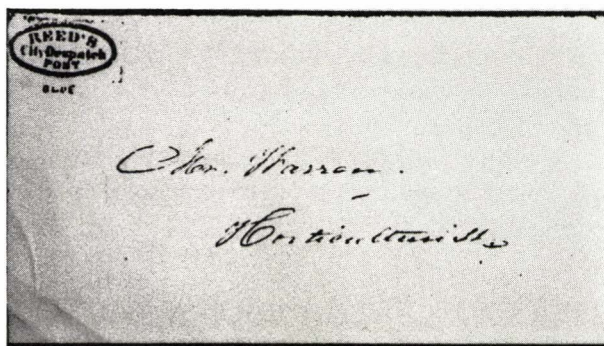 REED'S
City Despatch
POST
BLUE
Warren.
Horticulturist